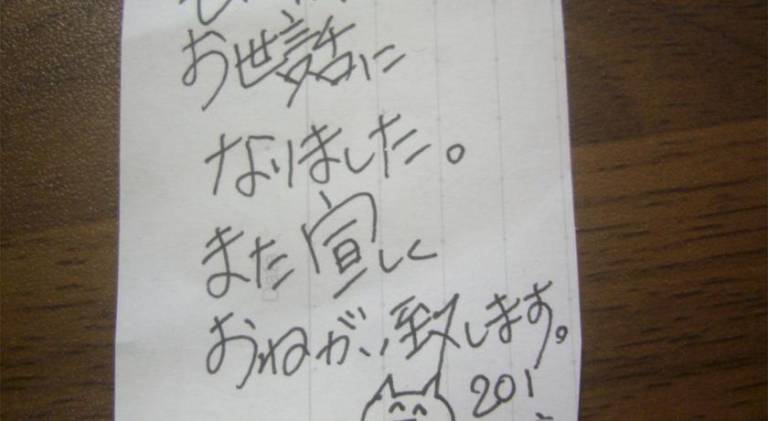 お世話に
なりました。
また宜しく
おねがい致します。
201